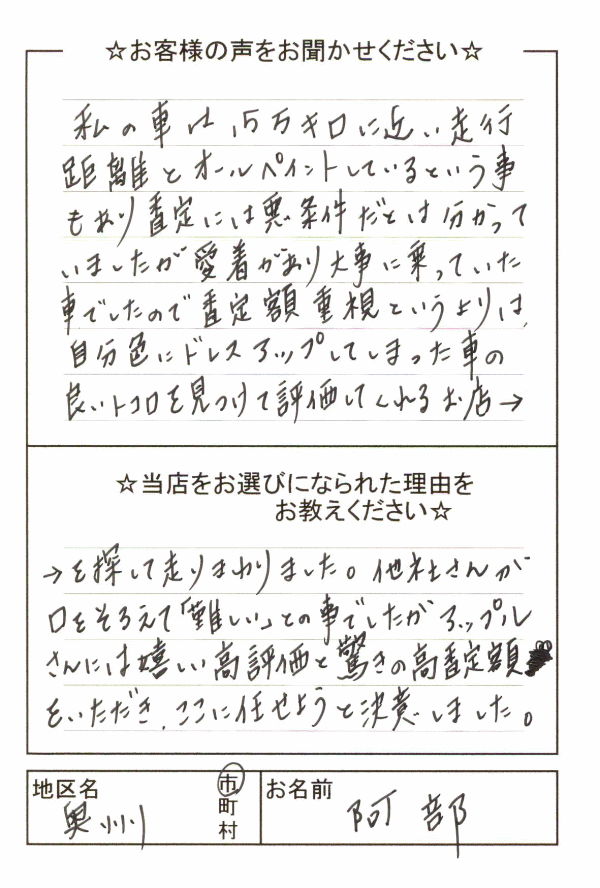 ☆お客様の声をお聞かせください☆
私の車は15万キロに近い走行
距離とオールペイントしているという事
もあり査定には悪条件だとは分かって
いましたが愛着があり大事に乗っていた
車でしたので査定額重視というよりは、
自分色にドレスアップしてしまった車の
良いトコロを見つけて評価してくれるお店→
☆当店をお選びになられた理由を
お教えください☆
→を探して走りまわりました。他社さんが
口をそろえて「難しい」との事でしたがアップル
さんには嬉しい高評価と驚きの高査定額
をいただき、ここに任せようと決意しました。
地区名 奥州 市
町
村
お名前 阿部